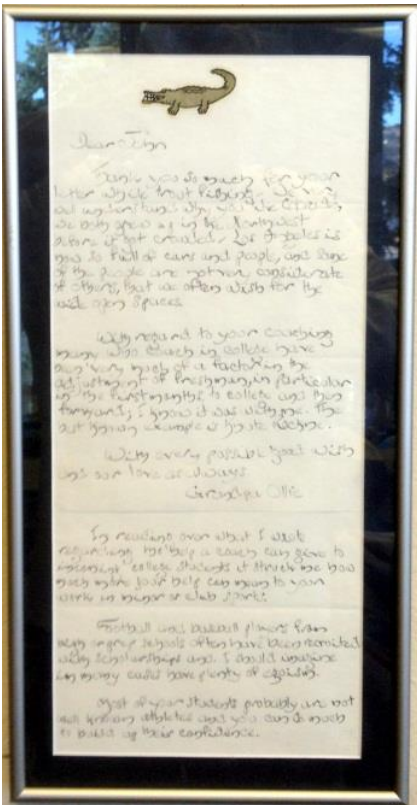 Dear John
Thank you so much for your
letter while trout fishing. We very
we both grew up in the Northwest
before it got crowded. Los Angeles is
now so full of cars and people, and some
of the people are not very considerate
of others, that we often wish for the
wide open spaces.
With regard to your coaching
many who coach in college have
been very much of a factor in the
adjustment of freshman, in particular
in the first months to college and then
I know it was with me. The
best known example is Knute Rockne.
With every possible good wish
and our love as always
Grandpa Ollie
In reading over what I wrote
regarding the help a coach can give to
incoming college students it struck me how
much more your help can mean to your
work in minor or club sports.
Football and baseball players from
high or prep schools often have been recruited
with scholarships and I should imagine
in many cases have plenty of egoism.
Most of your students probably are not
well known athletes and you can do much
to build up their confidence.